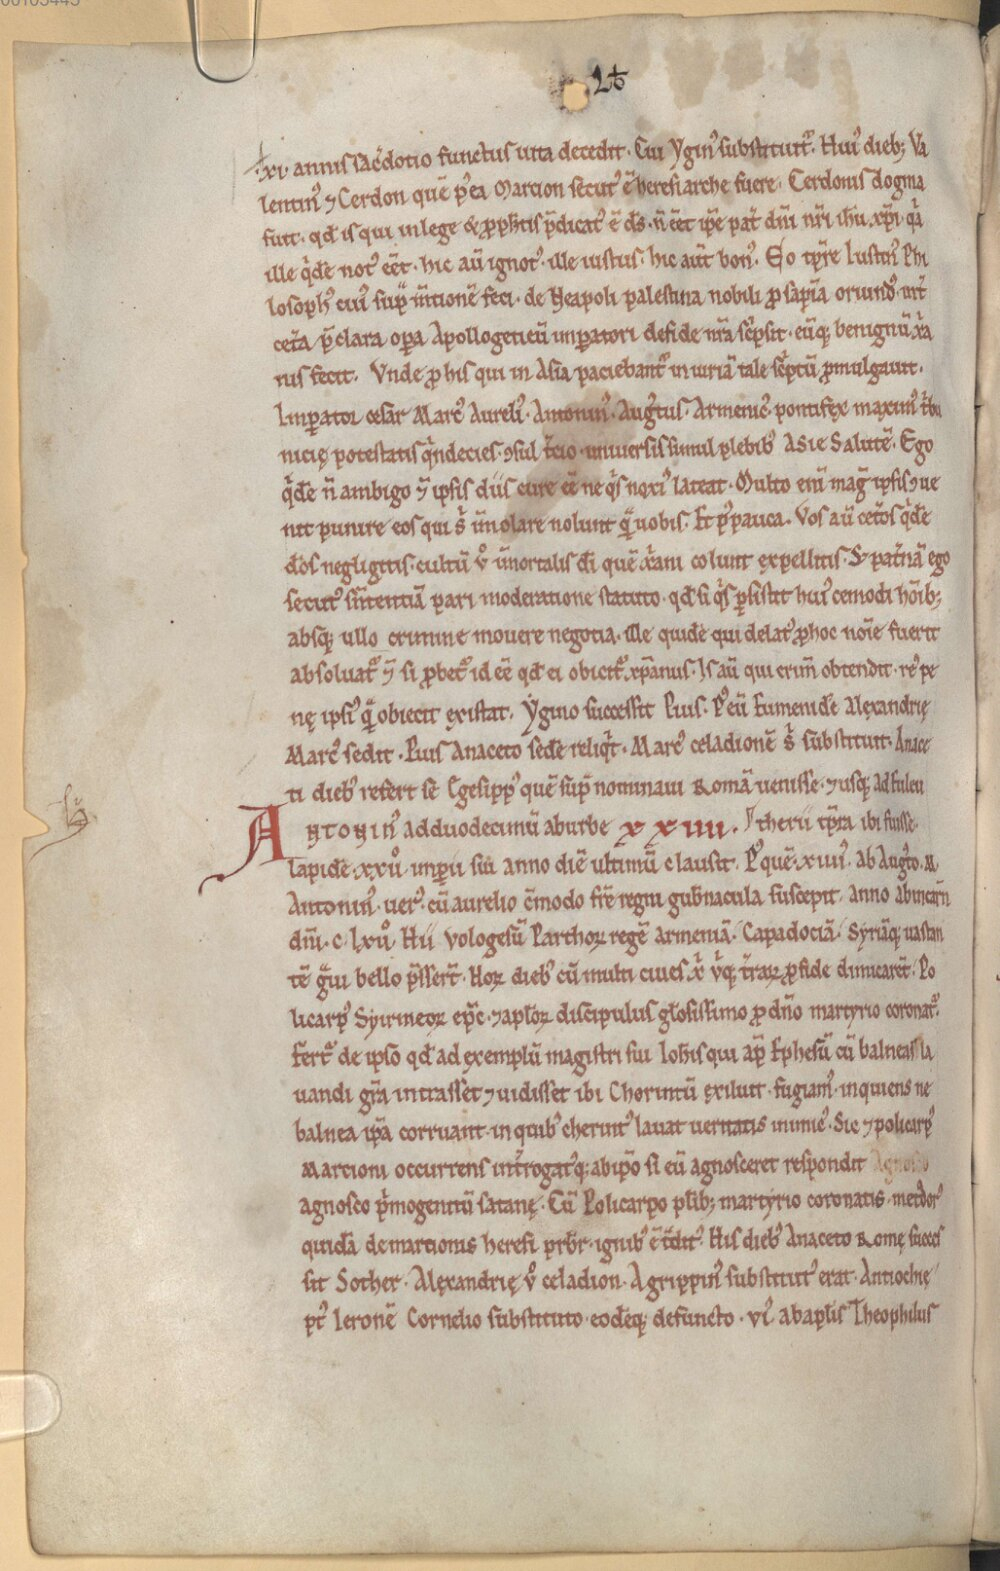 00103445
26
xi· annis sac̄dotio functus uita decedit· Cui Yginꝰ substituit᷑· Huiꝰ dieb; Va
lentinꝰ ⁊ Cerdon quē p̄ ei Marcion secutꝰ ē heresiarche fuere· Cerdonis dogma
fuit· qd̄ is qui in lege & ꝓph̄tis p̄dicatꝰ ē d̄s· n̄ eēt ip̄e pat̄ dn̄i nr̄i ih̄u xp̄i· q̄a
ille q̄de notꝰ eēt· hic aū ignotꝰ· ille iustus· hic aūt bonꝰ· Eo tp̄re Iustinꝰ Phi
losophꝰ cuiꝰ sup̄ m̄tionē feci· de Neapoli palestina nobili ꝓsapia oriundꝰ· int̄
cet̄a p̄clara oꝑa Apollogeticū inꝑatori de fide nr̄a sc̄psit· eūq; benignū xr̄a
nis fecit· Vnde ꝓ his qui in Asia paciebant᷑ in iuriā tale sc̄ptū ꝓmulgauit·
Inꝑator cesar Marcꝰ Aureliꝰ· Antoninꝰ· Augꝰtus· Armenicꝰ· pontifex maximꝰ t̄bu
nicię potestatis q̄ndecies· ꝯsul t̄cio· uniuersis simul plebibꝰ Asie Salutē· Ego
q̄de n̄ ambigo ⁊ ipsis diis cure eē ne q̄s noxiꝰ lateat· Multo eni maḡ ipsis ꝯue
nit punire eos qui s̄ im̄olare nolunt q̄ uobis· Et pꝰ pauca· Vos aū cet̄os q̄de
deos negligitis· cultū v̊ im̄ortalis dī quē xr̄ani colunt expellitis· & pat̄nā ego
secutꝰ sn̄tentiā pari moderatione statuto· qd̄ si q̄s ꝑsistit huiꝰ cemodi hoīb;
absq; ullo crimine mouere negotia· ille quidē qui delatꝰ ꝓ hoc noīe fuerit
absoluat᷑ ⁊ si ꝓbet᷑ id eē qd̄ ei obicit᷑ xp̄ianus· Is aū qui crim̄ obtendit· reꝰ pe
nę ipsiꝰ q̄ obiecit existat· Ygino successit Pius· Pꝰ eū Eumenidē Alexandrię
Marcꝰ sedit· Pius Anaceto sede reliq̄t· Marcꝰ celadionē s̄ substituit· Anace
ti diebꝰ refert se Egesippꝰ quē sup̄ nominaui Romā uenisse· ⁊ usq; ad Euleu
Antoninꝰ ad duodecimū ab urbe xxiiii· therii tp̄ra ibi fuisse·
lapidē· xxv̊· inꝑii sui anno diē ultimū clausit· Pꝰ quē· xiiiiꝰ· ab Augꝰto· M·
Antoninꝰ· uerꝰ· cū aurelio c̄modo fr̄e regni gub̄nacula suscepit· anno ab incarn̄
dn̄i· c· lxv̊· Hii Vologesū Parthoꝝ regē armeniā· Capadociā· Syriāq; uastan
tē g̊ui bello p̄sser̄t· Hoꝝ diebꝰ cū multi ciues x̄ v̊q; t̄raꝝ ꝓ fide dimicarēt· Po
licarpꝰ Syirineoꝝ ep̄c· ⁊ aplōꝝ discipulus glōsissimo ꝓ dn̄o martyrio coronat᷑·
Fert᷑ de ipso qd̄ ad exemplū magistri sui Ioh̄is qui ap̄ Ephesū cū balneas la
uandi gr̄a intrasset ⁊ uidisset ibi Chorintū exiluit· fugiamꝰ· inquiens ne
balnea ip̄a corruant· in quibꝰ cherintꝰ lauat ueritatis inimicꝰ· Sic ⁊ policarpꝰ
Marcioni occurrens int̄rogatꝰq; ab ip̄o si eū agnosceret respondit Agnosco
agnosco p̄mogenitū satanę· Cū Policarpo plib; martyrio coronatis· metdorꝰ
quidā de marcionis heresi pr̄br· ignibꝰ ē t̄ditꝰ· His diebꝰ Anaceto Romę succes
sit Sother· Alexandrię v̊ celadion· Agrippinꝰ substitutꝰ erat· Antiochię
pꝰt Ieronē Cornelio substituto· eodēq; defuncto· viꝰ ab aplis Theophilus